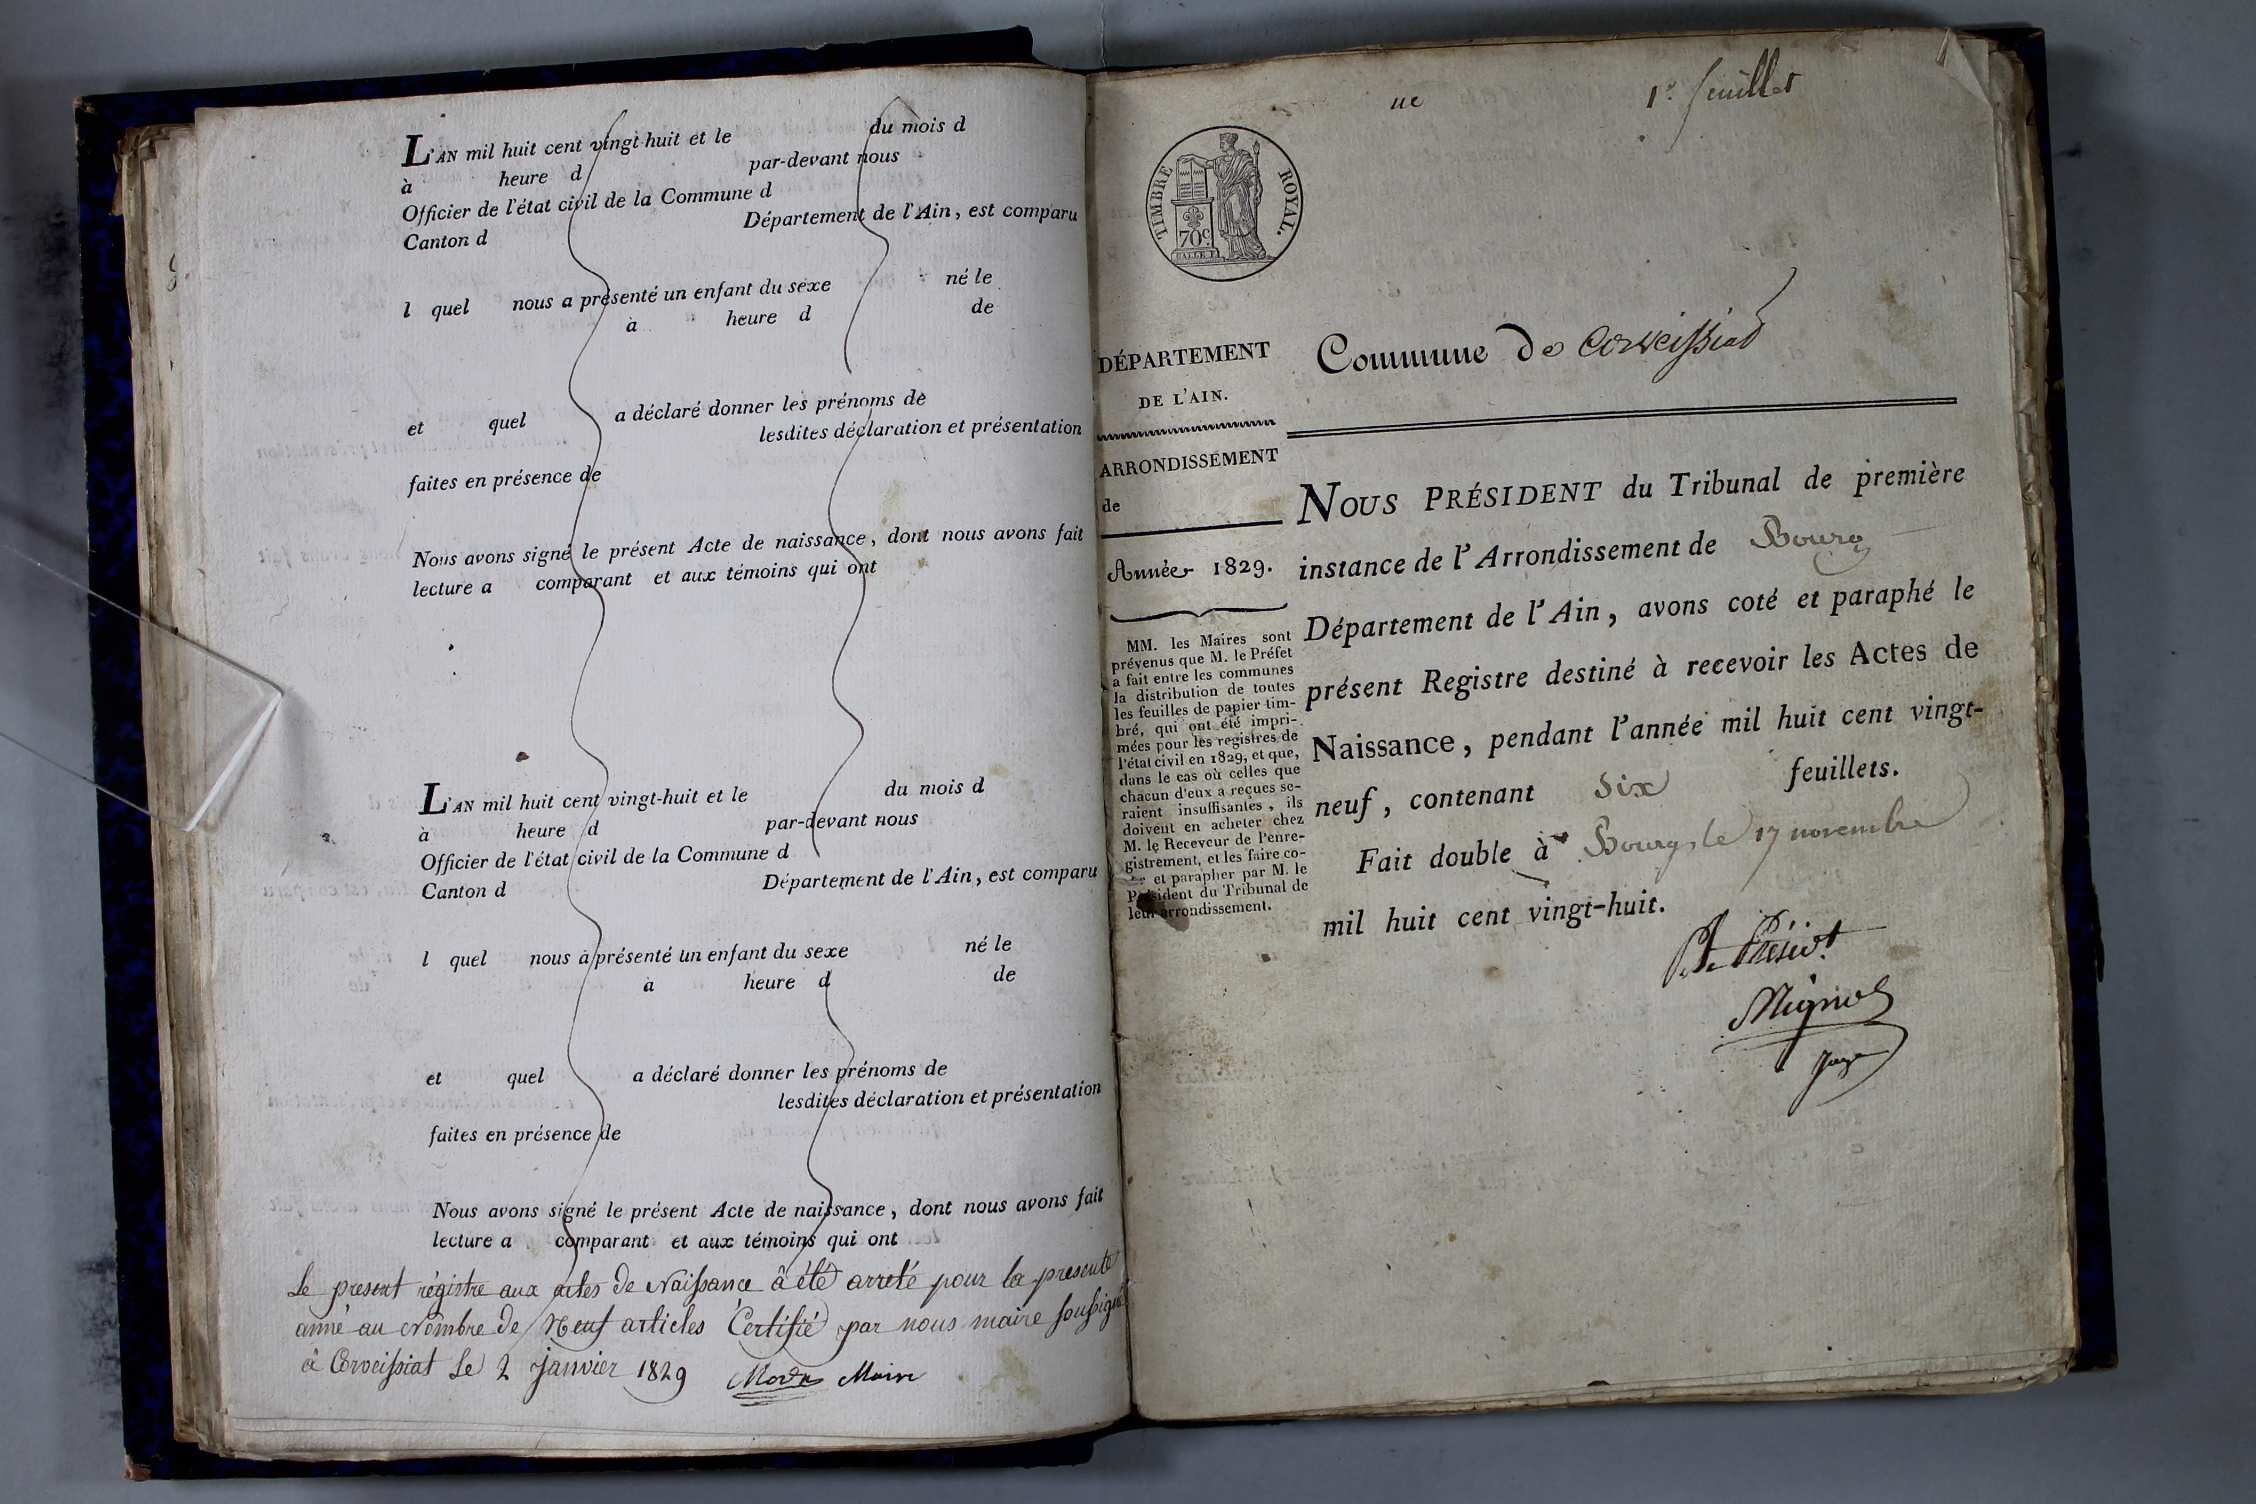 L'AN mil huit cent vingt-huit et le du mois d
à heure d par-devant nous
Officier de l'état civil de la Commune d
Canton d Département de l'Ain, est comparu
l quel nous a présenté un enfant du sexe né le
à heure d de
et quel a déclaré donner les prénoms de
lesdites déclaration et présentation
faites en présence de
Nous avons signé le présent Acte de naissance, dont nous avons fait
lecture a comparant et aux témoins qui ont
L'AN mil huit cent vingt-huit et le du mois d
à heure d par-devant nous
Officier de l'état civil de la Commune d
Canton d Département de l'Ain, est comparu
l quel nous a présenté un enfant du sexe né le
à heure d de
et quel a déclaré donner les prénoms de
lesdites déclaration et présentation
faites en présence de
Nous avons signé le présent Acte de naissance, dont nous avons fait
lecture a comparant et aux témoins qui ont
Le present régistre aux actes de Naissance â été arreté pour la presente
anné au Nombre de Neuf articles Certifié par nous maire soussigné
à Corveissiat Le 2 janvier 1829 Maire
1er feuillet
TIMBRE ROYAL.
70c
DÉPARTEMENT
DE L'AIN.
ARRONDISSEMENT
de
Année 1829.
MM. les Maires sont
prévenus que M. le Préfet
a fait entre les communes
la distribution de toutes
les feuilles de papier tim-
bré, qui ont été impri-
mées pour les registres de
l'état civil en 1829, et que,
dans le cas où celles que
chacun d'eux a reçues se-
raient insuffisantes, ils
doivent en acheter chez
M. le Receveur de l'enre-
gistrement, et les faire co-
et parapher par M. le
Président du Tribunal de
leur arrondissement.
Commune de Corveissiat
NOUS PRÉSIDENT du Tribunal de première
instance de l'Arrondissement de Bourg
Département de l'Ain, avons coté et paraphé le
présent Registre destiné à recevoir les Actes de
Naissance, pendant l'année mil huit cent vingt-
neuf, contenant six feuillets.
Fait double à Bourg, le 17 novembre
mil huit cent vingt-huit.